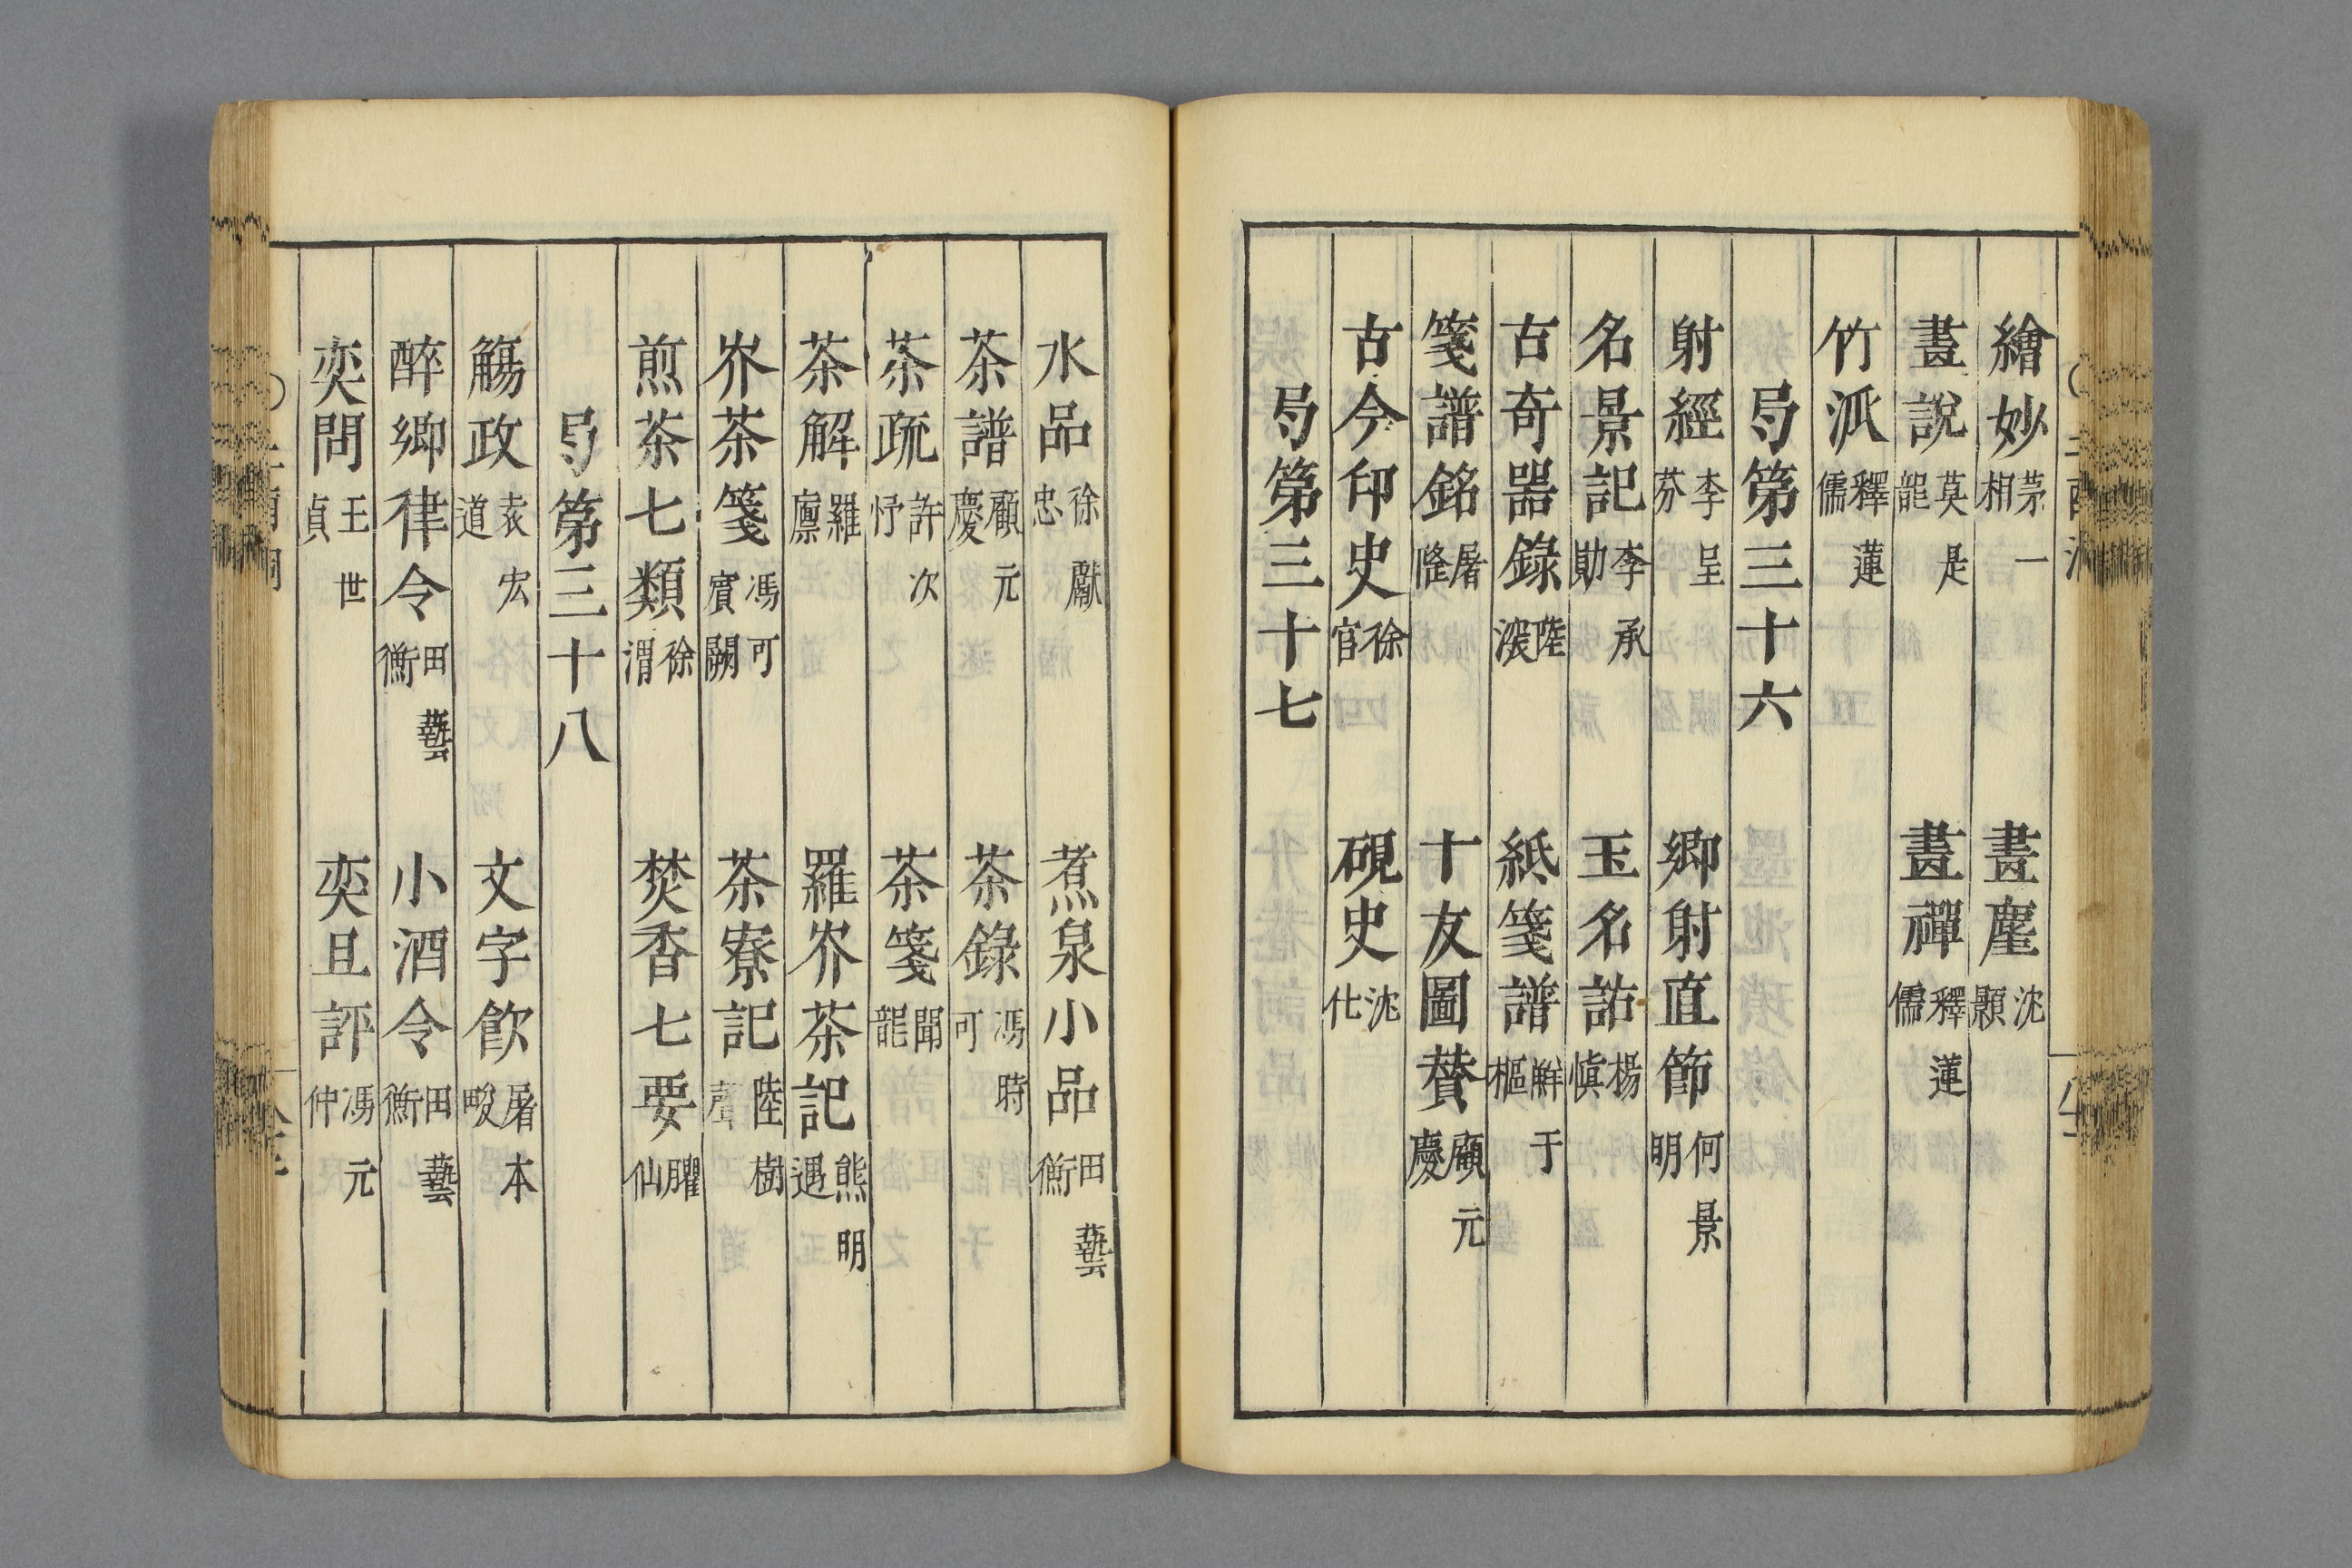 繪妙茅一相 畫麈沈顥
畫說莫是龍 畫禪釋蓮儒
竹派釋蓮儒
弓第三十六
射經李呈芬 鄉射直節何景明
名景記李承勛 玉名詁楊慎
古奇器錄陸深 紙箋譜鮮于樞
箋譜銘屠隆 十友圖贊顧元慶
古今印史徐官 硯史沈仕
弓第三十七
水品徐獻忠 煮泉小品田藝衡
茶譜顧元慶 茶錄馮時可
茶疏許次忬 茶箋聞龍
茶解羅廩 羅岕茶記熊明遇
岕茶箋馮可賓 茶寮記陸樹聲
煎茶七類徐渭 焚香七要臞仙
弓第三十八
觴政袁宏道 文字飲屠本畯
醉鄉律令田藝衡 小酒令田藝衡
奕問王世貞 奕旦評馮元仲